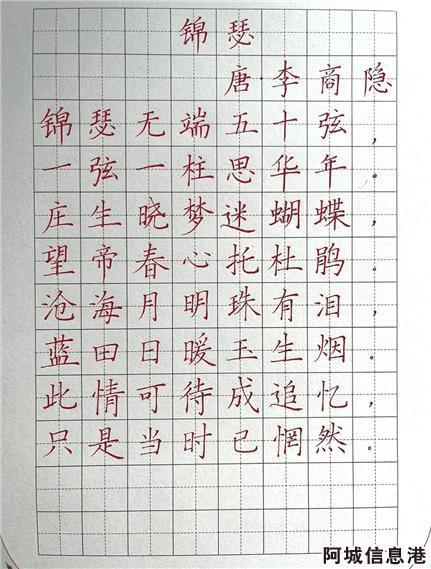 锦瑟
唐·李商隐
锦瑟无端五十弦，
一弦一柱思华年。
庄生晓梦迷蝴蝶，
望帝春心托杜鹃。
沧海月明珠有泪，
蓝田日暖玉生烟。
此情可待成追忆，
只是当时已惘然。
阿城信息港